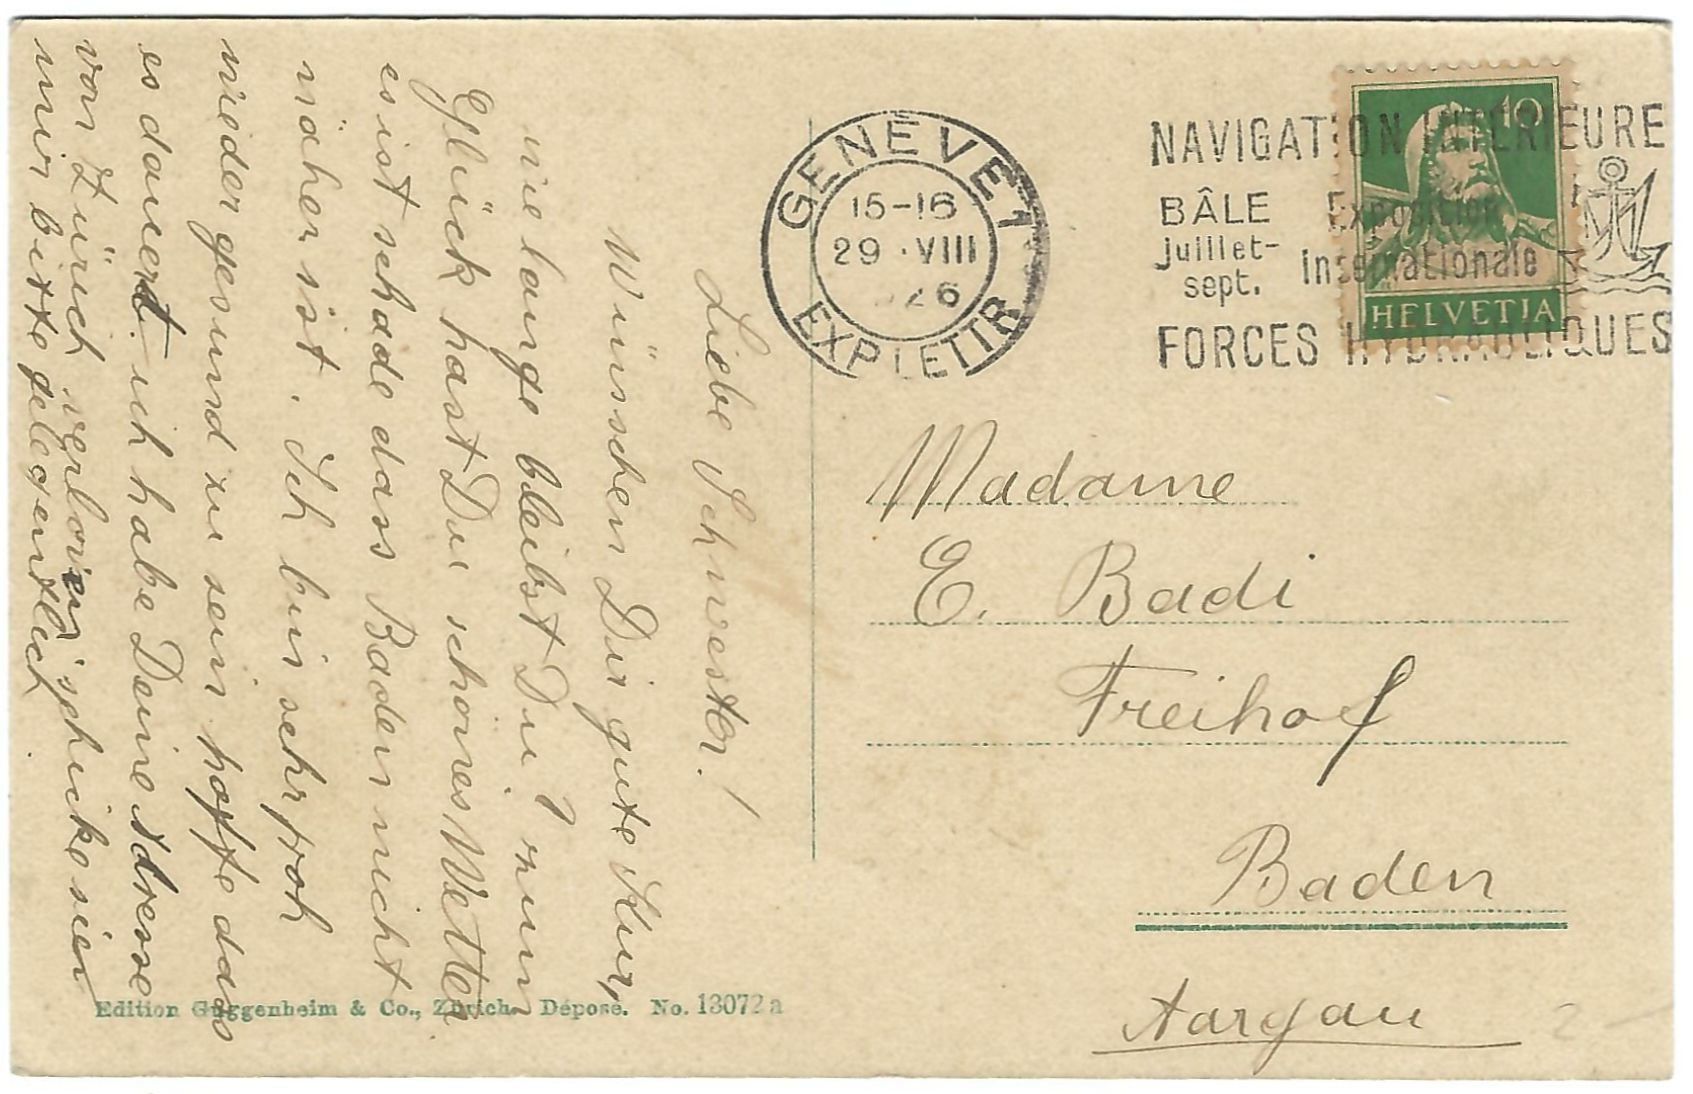 Liebe Schwester!
Wünschen Dir gute Kur,
wie lange bleibst Du? zum
Glück hast Du schönes Wetter
es ist schade dass Baden nicht
näher ist. Ich bin sehr froh
wieder gesund zu sein hoffe dass
es dauert. ich habe Deine Adresse
von Zürich verloren, schicke sie
mir bitte gelegentlich
Edition Guggenheim & Co., Zürich. Déposé. No. 13072a
GENÈVE 1
15-16
29.VIII
26
EXP. LETTR
NAVIGATION INTERIEURE
BÂLE Exposition
Juillet-
sept. Internationale
FORCES HYDRAULIQUES
10
HELVETIA
Madame
E. Badi
Freihof
Baden
Aargau